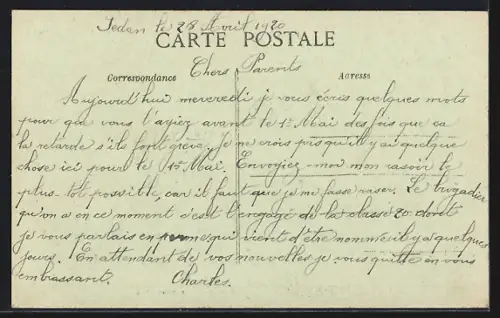 Sedan le 28 Avril 1920
CARTE POSTALE
Chers Parents
Correspondance Adresse
Aujourd'hui mercredi je vous écris quelques mots
pour que vous l'ayiez avant le 1er Mai des fois que ca
la retarde s'ils font grève. Je ne crois pas qu'il y ai quelque
chose ici pour le 1er Mai. Envoyiez-moi mon rasoir le
plus tôt possible, car il faut que je me fasse raser. Le brigadier
qu'on a en ce moment c'est l'engagé de la classe 20 dont
je vous parlais en qui vient d'être nommé il y a quelques
jours. En attendant de vos nouvelles je vous quitte en vous
embrassant. Charles.